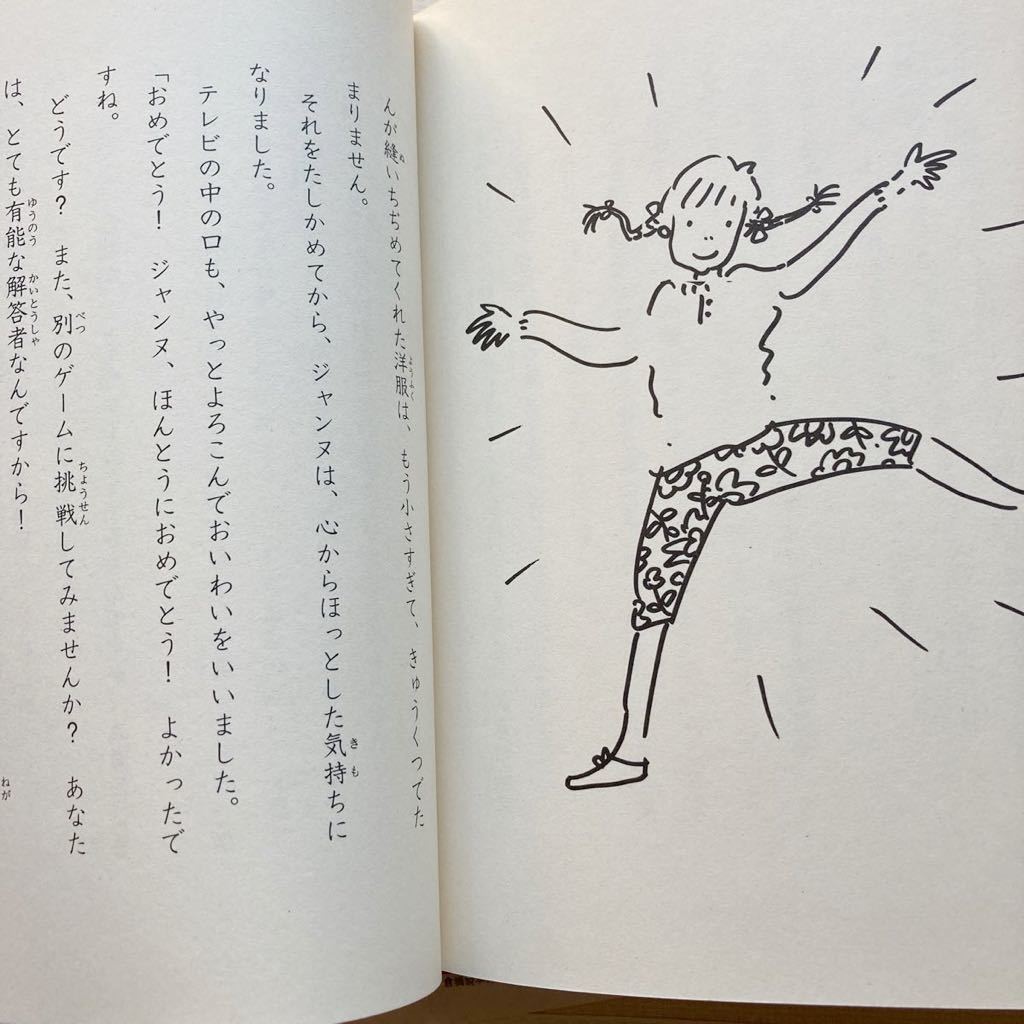 んが縫いちぢめてくれた洋服は、もう小さすぎて、きゅうくつでた
まりません。
それをたしかめてから、ジャンヌは、心からほっとした気持ちに
なりました。
テレビの中の口も、やっとよろこんでおいわいをいいました。
「おめでとう!　ジャンヌ、ほんとうにおめでとう!　よかったで
すね。
どうです?　また、別のゲームに挑戦してみませんか?　あなた
は、とても有能な解答者なんですから!